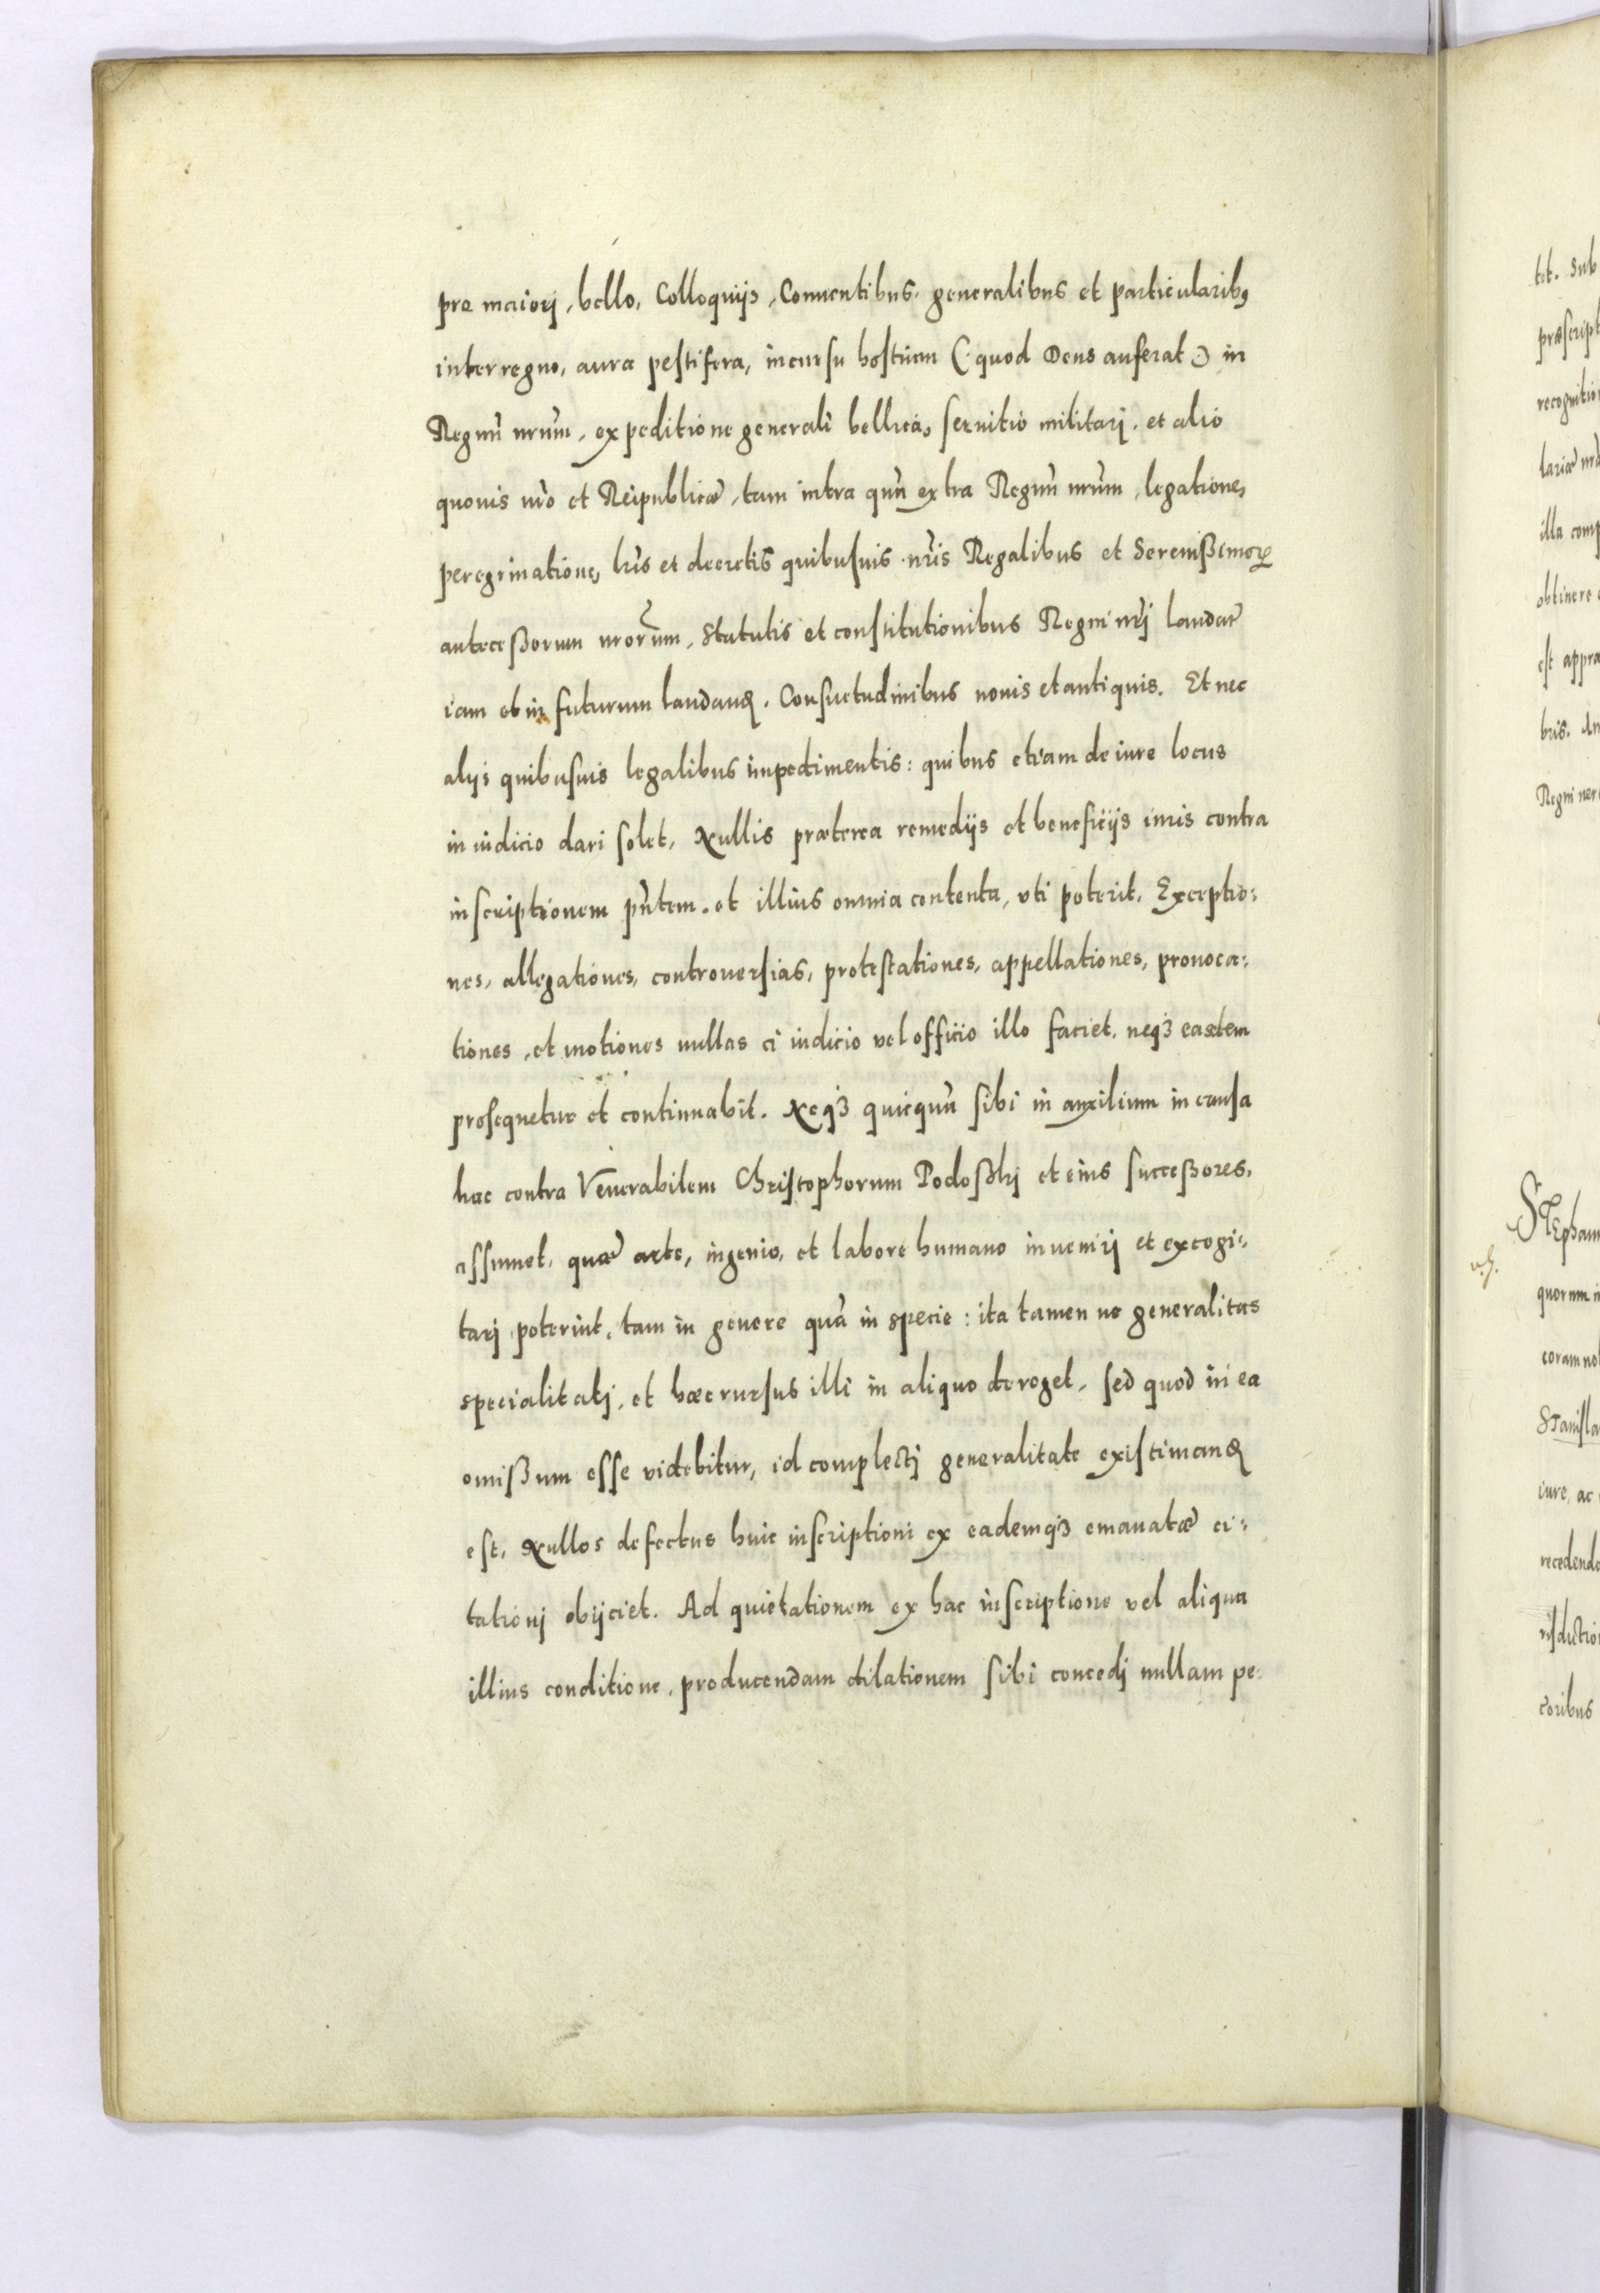 pro maiori, bello, Colloquijs, Conuentibus generalibus et particularibꝯ
interregno, aura pestifera, incursu hostium (: quod Deus auferat :) in
Regnũ nrũm, expeditione generali bellica, seruitio militari, et alio
quouis mõ et Reipublicæ, tam intra quã extra Regnũ nrũm, legatione,
peregrinatione, lrĩs et decretis quibusuis nrĩs Regalibus et Serenißimoꝝ
anteceßorum nrorũm, Statutis et constitutionibus Regni nrĩ laudat̃
iam et in futurum laudanꝺ. Consuetudinibus nouis et antiquis. Et nec
alijs quibusuis legalibus impedimentis: quibus etiam de iure locus
in iudicio dari solet, Nullis præterea remedijs et beneficijs iuris contra
inscriptionem pñtem. et illius omnia contenta, vti poterit, Exceptio:
nes, allegationes, controuersias, protestationes, appellationes, prouoca:
tiones, et motiones nullas ci iudicio vel officio illo faciet, neqꝫ easdem
prosequetur et continuabit. Neqꝫ quicquã sibi in auxilium in causa
hac contra Venerabilem Christophorum Podoßkj et eius succeßores,
assumet, quæ arte, ingenio, et labore humano inuenirj et excogi:
tarj poterint, tam in genere quã in specie: ita tamen ne generalitas
specialitatj, et hæc rursus illi in aliquo deroget, sed quod in ea
omißum esse videbitur, id complectj generalitate existimanꝺ
est, Nullos defectus huic inscriptioni ex eademqꝫ emanatæ ci:
tationj obijciet. Ad quietationem ex hac inscriptione vel aliqua
illius conditione, producendam dilationem sibi concedj nullam pe:
tet. Sub
præscript
recognition
lariæ nrã
illa comp
obtinere
est appra
bris. An
Regni ner
Stephan
quorum in
coram nob
Stanisla
iure, ac
recedendo
risdictio
coribus